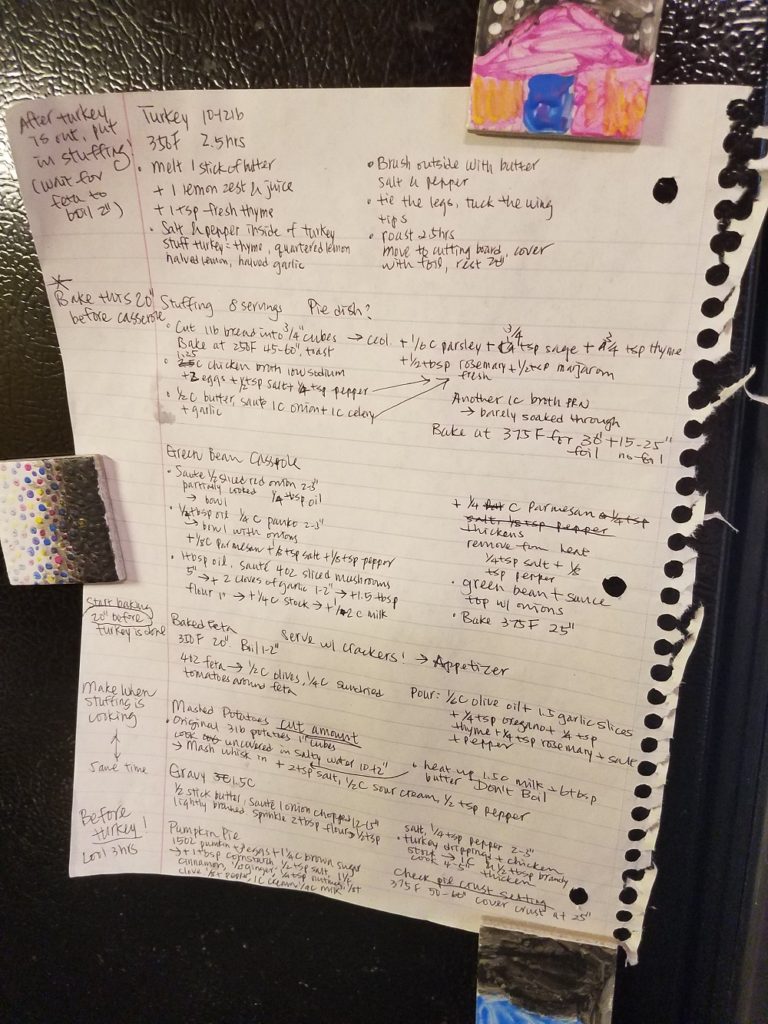 After turkey
is out, put
in stuffing!
(wait for
feta to
boil 2")
Turkey 10-12lb
350F 2.5hrs
• melt 1 stick of butter
+ 1 lemon zest & juice
+ 1 tsp fresh thyme
• Salt & pepper inside of turkey
stuff turkey = thyme, quartered lemon
halved lemon, halved garlic
• Brush outside with butter
salt & pepper
• tie the legs, tuck the wing
tips
• roast 2.5hrs
move to cutting board, cover
with foil, rest 20"
*
Bake this 20"
before casserole
Stuffing 8 servings Pie dish?
• Cut 1lb bread into 3/4" cubes → cool
Bake at 250F 45-60", toast
• 1.25 C chicken broth low sodium
+ 2 eggs + 1/2 tsp salt + 1/4 tsp pepper
• 1/2 C butter, saute 1C onion + 1C celery
+ garlic
+ 1/6 C parsley + 3/4 tsp sage + 3/4 tsp thyme
+ 1/2 tbsp rosemary + 1/2 tsp marjoram
fresh
Another 1C broth PRN
→ barely soaked through
Bake at 375F for 30" + 15-25"
foil no foil
Green Bean Casserole
• Saute 1/2 sliced red onion 2-3"
partially cooked 1/4 tbsp oil
→ bowl
• 1/2 tbsp oil 1/4 C panko 2-3"
→ bowl with onions
+ 1/8 C parmesan + 1/8 tsp salt + 1/8 tsp pepper
• 1 tbsp oil, saute 4oz sliced mushrooms
5" → + 2 cloves of garlic 1-2" → + 1.5 tbsp
flour 1" → + 1/4 C stock → + 1/2 C milk
+ 1/4 C parmesan + 1/4 tsp
salt, 1/8 tsp pepper
thickens
remove from heat
1/4 tsp salt + 1/8
tsp pepper
• green bean + sauce
top w/ onions
• Bake 375F 25"
Start baking
20" before
turkey is done
Baked Feta
350F 20" Boil 1-2"
Serve w/ crackers! → Appetizer
4oz feta → 1/2 C olives, 1/4 C sundried
tomatoes around feta
Pour: 1/2 C olive oil + 1.5 garlic slices
+ 1/4 tsp oregano + 1/4 tsp
thyme + 1/4 tsp rosemary + salt
+ pepper
Make when
stuffing is
cooking
Same time
Mashed Potatoes cut amount
• Original 3lb potatoes 1" cubes
cook uncovered in salty water 10-12"
→ Mash whisk in + 2 tsp salt, 1/2 C sour cream, 1/2 tsp pepper
• heat up 1.5C milk + 6 tbsp
butter Don't Boil
Gravy 1.5C
1/2 stick butter, saute 1 onion chopped 12-15"
lightly browned sprinkle 2 tbsp flour → 1/2 tsp
salt, 1/4 tsp pepper 2-3"
• turkey drippings + chicken
stock → 1C + 1/2 tbsp brandy
cook 4-5" thicken
Before
turkey!
Cool 3hrs
Pumpkin Pie
15oz pumpkin + 3 eggs + 1 1/4 C brown sugar
→ + 1 tbsp cornstarch, 1/2 tsp salt, 1 1/2
cinnamon, 1/2 ginger, 1/4 tsp nutmeg, 1/8 t
clove 1/8 t pepper, 1C cream, 1/4 C milk
Check pie crust setting
375F 50-60" cover crust at 25"